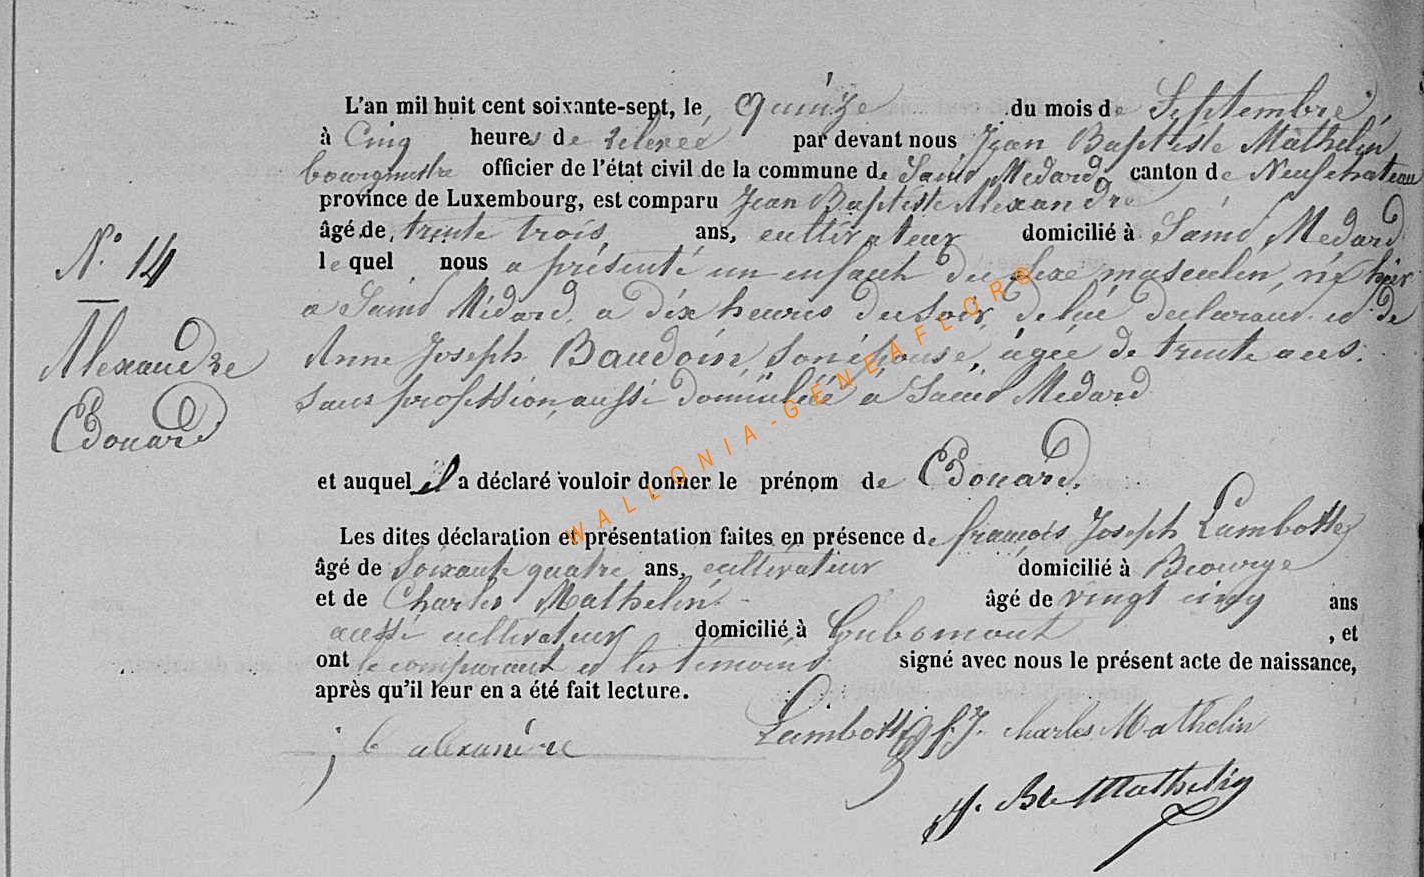 L'an mil huit cent soixante-sept, le quinze du mois de Septembre,
à Cinq heures de relevée par devant nous Jean Baptiste Mathelin
bourgmestre officier de l'état civil de la commune de Saint Médard, canton de Neufchateau
province de Luxembourg, est comparu Jean Baptiste Alexandre
âgé de trente trois ans, cultivateur domicilié à Saint Médard
lequel nous a présenté un enfant du sexe masculin, né hier
a Saint Médard, a dix heures du soir, de lui déclarant et de
Anne Joseph Baudoin, son épouse, agée de trente ans.
sans profession, aussi domiciliée à Saint Médard
N.° 14
Alexandre
Edouard
et auquel il a déclaré vouloir donner le prénom de Edouard.
Les dites déclaration et présentation faites en présence de françois Joseph Lambotte
âgé de Soixante quatre ans, cultivateur domicilié à
et de Charles Mathelin âgé de vingt cinq ans
aussi cultivateur domicilié à Gribomont, et
ont le comparant et les témoins signé avec nous le présent acte de naissance,
après qu'il leur en a été fait lecture.
j b alexandre
Lambotte f. J. Charles Mathelin
J. Bte Mathelin
WALLONIA-GENEAFLOR®